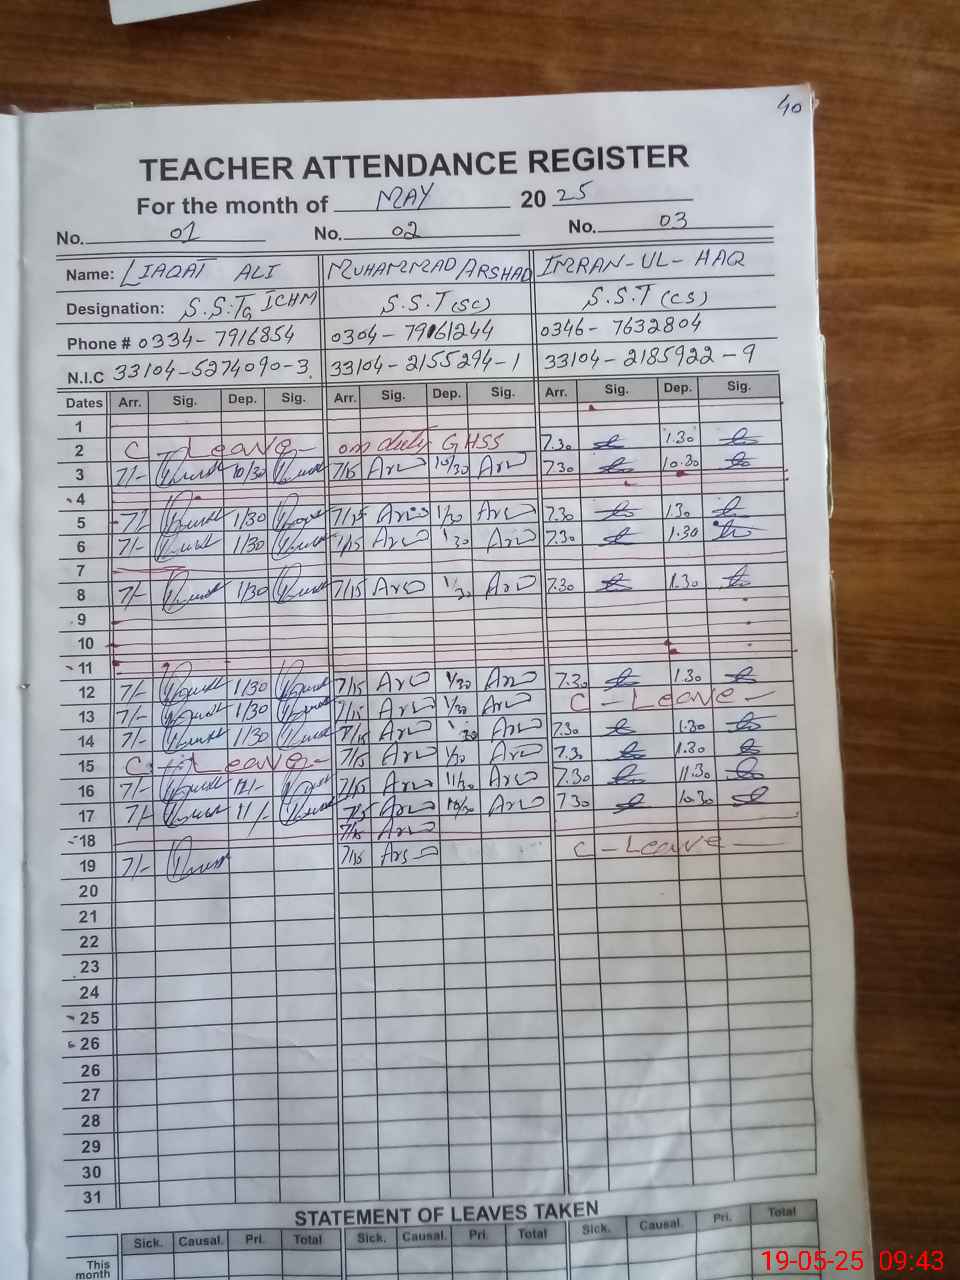 40
TEACHER ATTENDANCE REGISTER
For the month of MAY 2025
No. 01 No. 02 No. 03
Name: LIAQAT ALI MUHAMMAD ARSHAD IMRAN-UL-HAQ
Designation: S.S.T S.S.T (SC) S.S.T (CS)
Phone # 0334-7916854 0304-7961244 0346-7632804
N.I.C 33104-5274090-3 33104-2155294-1 33104-2185922-9
Dates Arr. Sig. Dep. Sig. Arr. Sig. Dep. Sig. Arr. Sig. Dep. Sig.
1
2 C - Leave - on duty GHSS 7.30 1.30
3 7/- 10/30 7/15 10/30 7.30 10.30
4
5 7/- 1/30 7/15 1/30 7.30 1.30
6 7/- 1/30 7/15 1/30 7.30 1.30
7
8 7/- 1/30 7/15 1/30 7.30 1.30
9
10
11
12 7/- 1/30 7/15 1/30 7.30 1.30
13 7/- 1/30 7/15 1/30 C - Leave -
14 7/- 1/30 7/15 1/30 7.30 1.30
15 C - Leave - 7/15 1/30 7.3 1.30
16 7/- 7/15 11/30 7.30 11.30
17 7/- 11/- 7/15 10/30 7.30 10.30
18 7/15
19 7/- 7/15 C - Leave -
20
21
22
23
24
25
26
26
27
28
29
30
31
STATEMENT OF LEAVES TAKEN
Sick. Causal. Pri. Total Sick. Causal. Pri. Total Sick. Causal. Pri. Total
This month
19-05-25 09:43